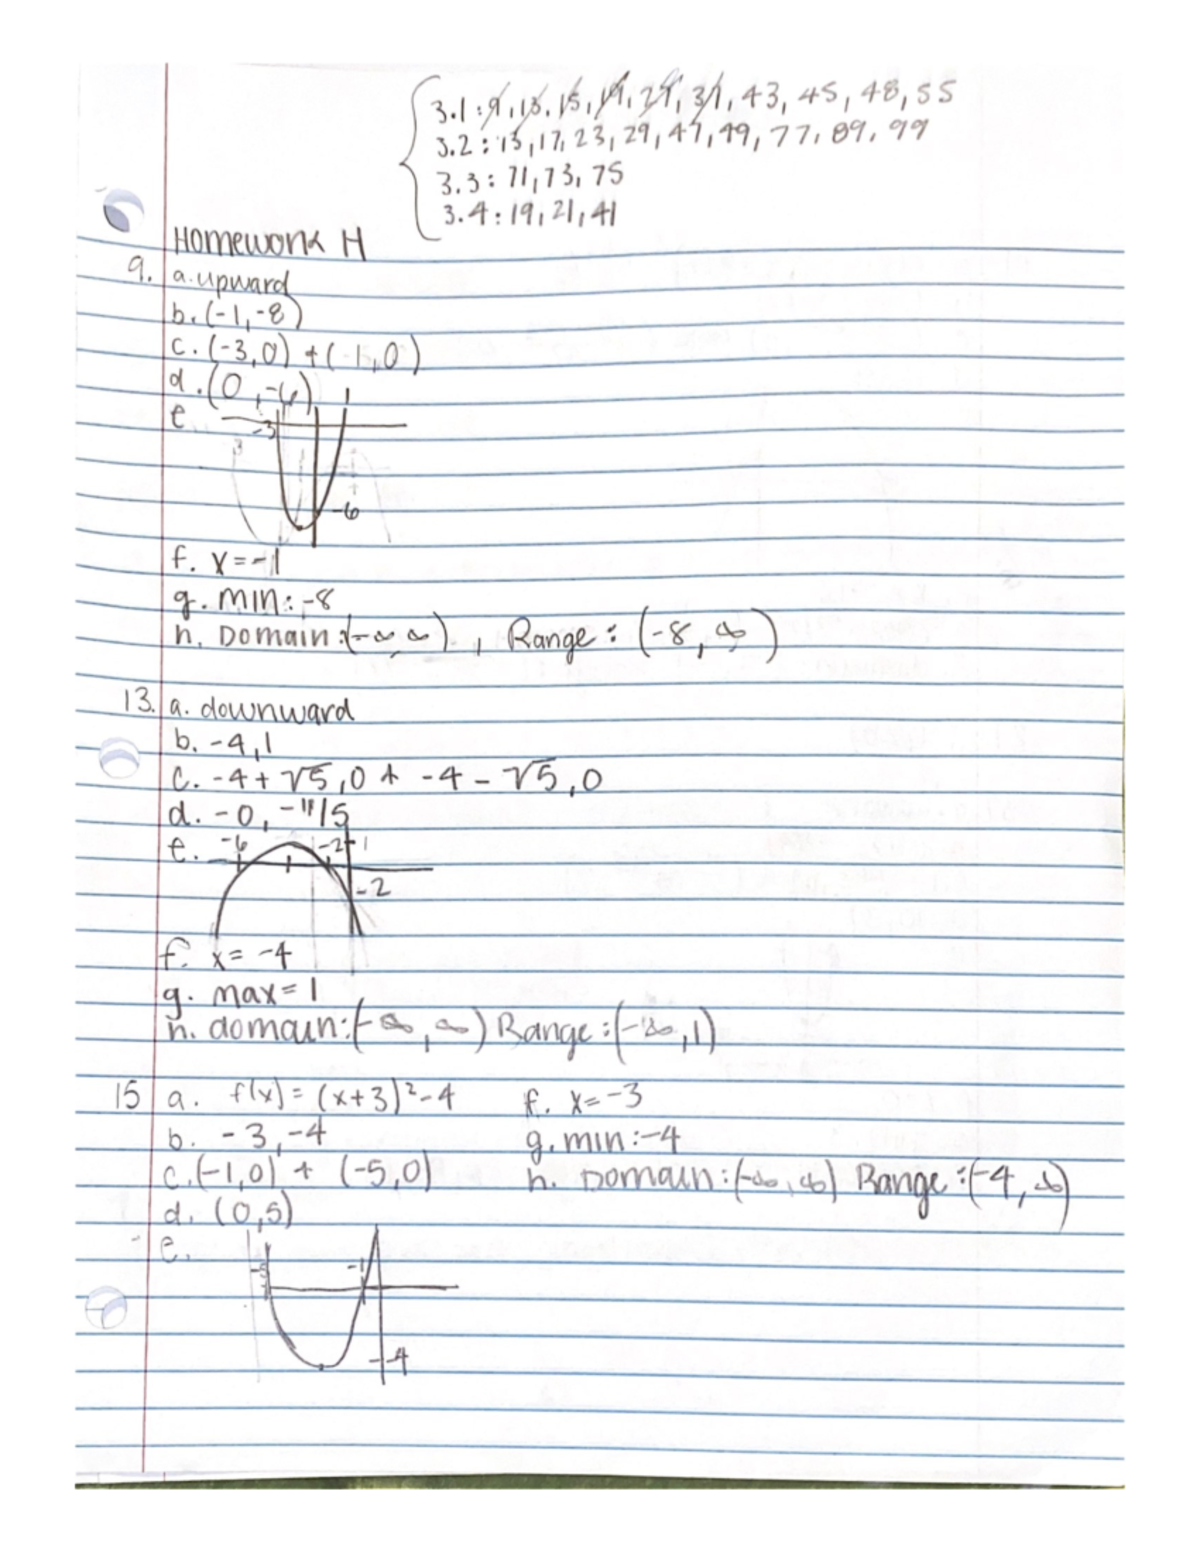 3.1: 9, 13, 15, 19, 29, 31, 43, 45, 48, 55
3.2: 13, 17, 23, 29, 47, 49, 77, 89, 99
3.3: 71, 73, 75
3.4: 19, 21, 41
Homework H
9. a. upward
b. (-1, -8)
c. (-3,0) + (1,0)
d. (0, -6)
e.
-3 1
-6
f. x = -1
g. min: -8
h. Domain: (-∞, ∞), Range: (-8, ∞)
13. a. downward
b. -4, 1
c. -4 + √5, 0 + -4 - √5, 0
d. -0, -11/5
e. -6 -2 1
-2
f. x = -4
g. max = 1
h. domain: (-∞, ∞) Range: (-∞, 1)
15 a. f(x) = (x+3)²-4 f. x = -3
b. -3, -4 g. min: -4
c. (-1,0) + (-5,0) h. Domain: (-∞, ∞) Range: (-4, ∞)
d. (0,5)
e.
-5 -1
-4